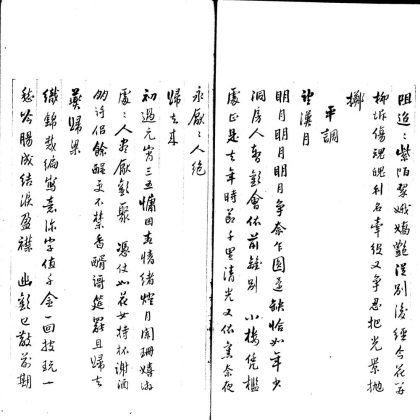 阻追〻紫陌翠娥嬌艷從別後經今花开
柳坼傷魂魄利名牽役又爭忍把光景拋
擲
平調
望漢月
明月明月明月爭奈乍圓還缺恰如年少
洞房人暫歡會依前離別 小樓凭檻
處正是去年時節千里清光又依舊奈夜
永厭〻人絕
歸去來
初過元宵三五慵困春情緒燈月闌珊嬉遊
處〻人盡厭歡聚 憑仗如花女持杯謝酒
朋詩侶餘酲更不禁香醑歌筵罷且歸去
燕歸梁
織錦裁編寫意深字值千金一回披玩一
愁吟腸成結淚盈襟 幽歡已散前期